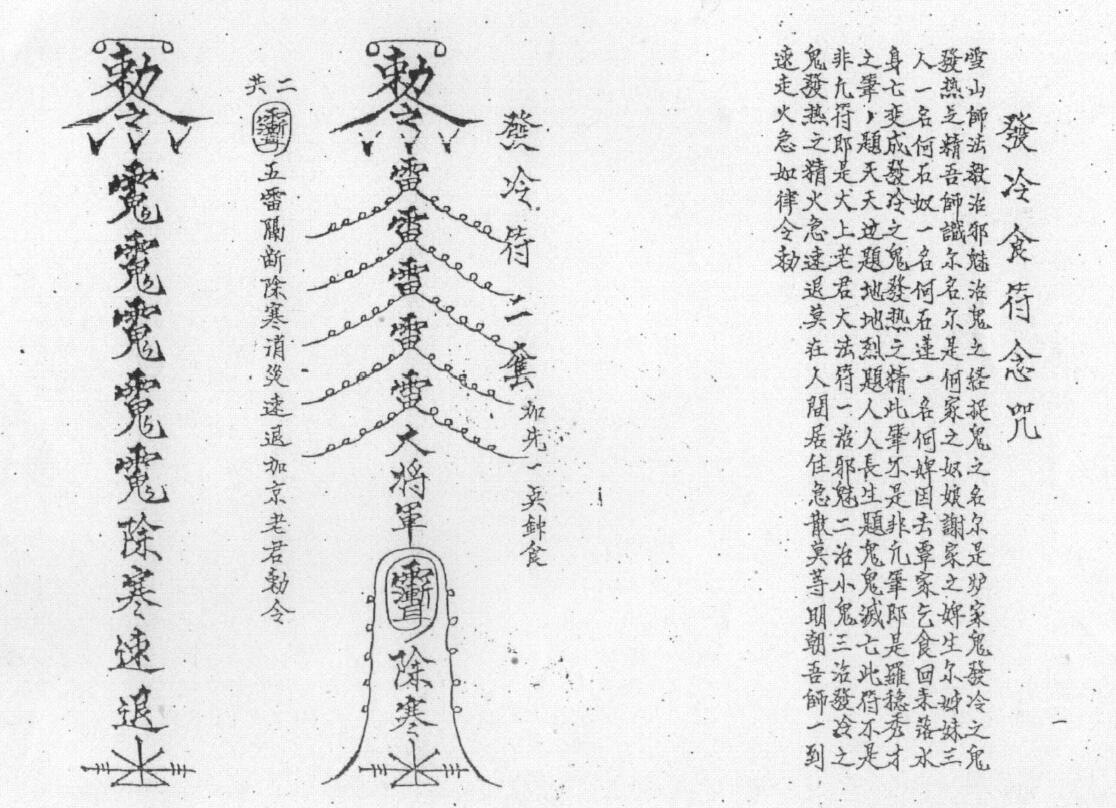 發冷食符念咒
雪山師法教治邪魅治鬼之経捉鬼之名尓是妒家鬼發冷之鬼
發热之精吾師識尓名尓是何家之奴娘謝家之婢生尓姊妹三
人一名何石奴一名何石蓮一名何婢因去覃家乞食回来落水
身亡变成發冷之鬼發热之精此筆不是非凢筆郎是羅穏秀才
之筆，題天天边題地地烈題人人長生題鬼鬼滅亡此符不是
非凢符郎是太上老君大法符一治邪魅二治小鬼三治發冷之
鬼發热之精火急速退莫在人間居住急散莫等明朝吾師一到
速走火急如律令勅
一
發冷符二隻
加先一吳鈡食
勅令
雷
雷
雷
雷
雷
大將軍
聻
除寒
二共
聻五雷隔斷除寒消災速退加京老君勅令
勅令
除寒速退